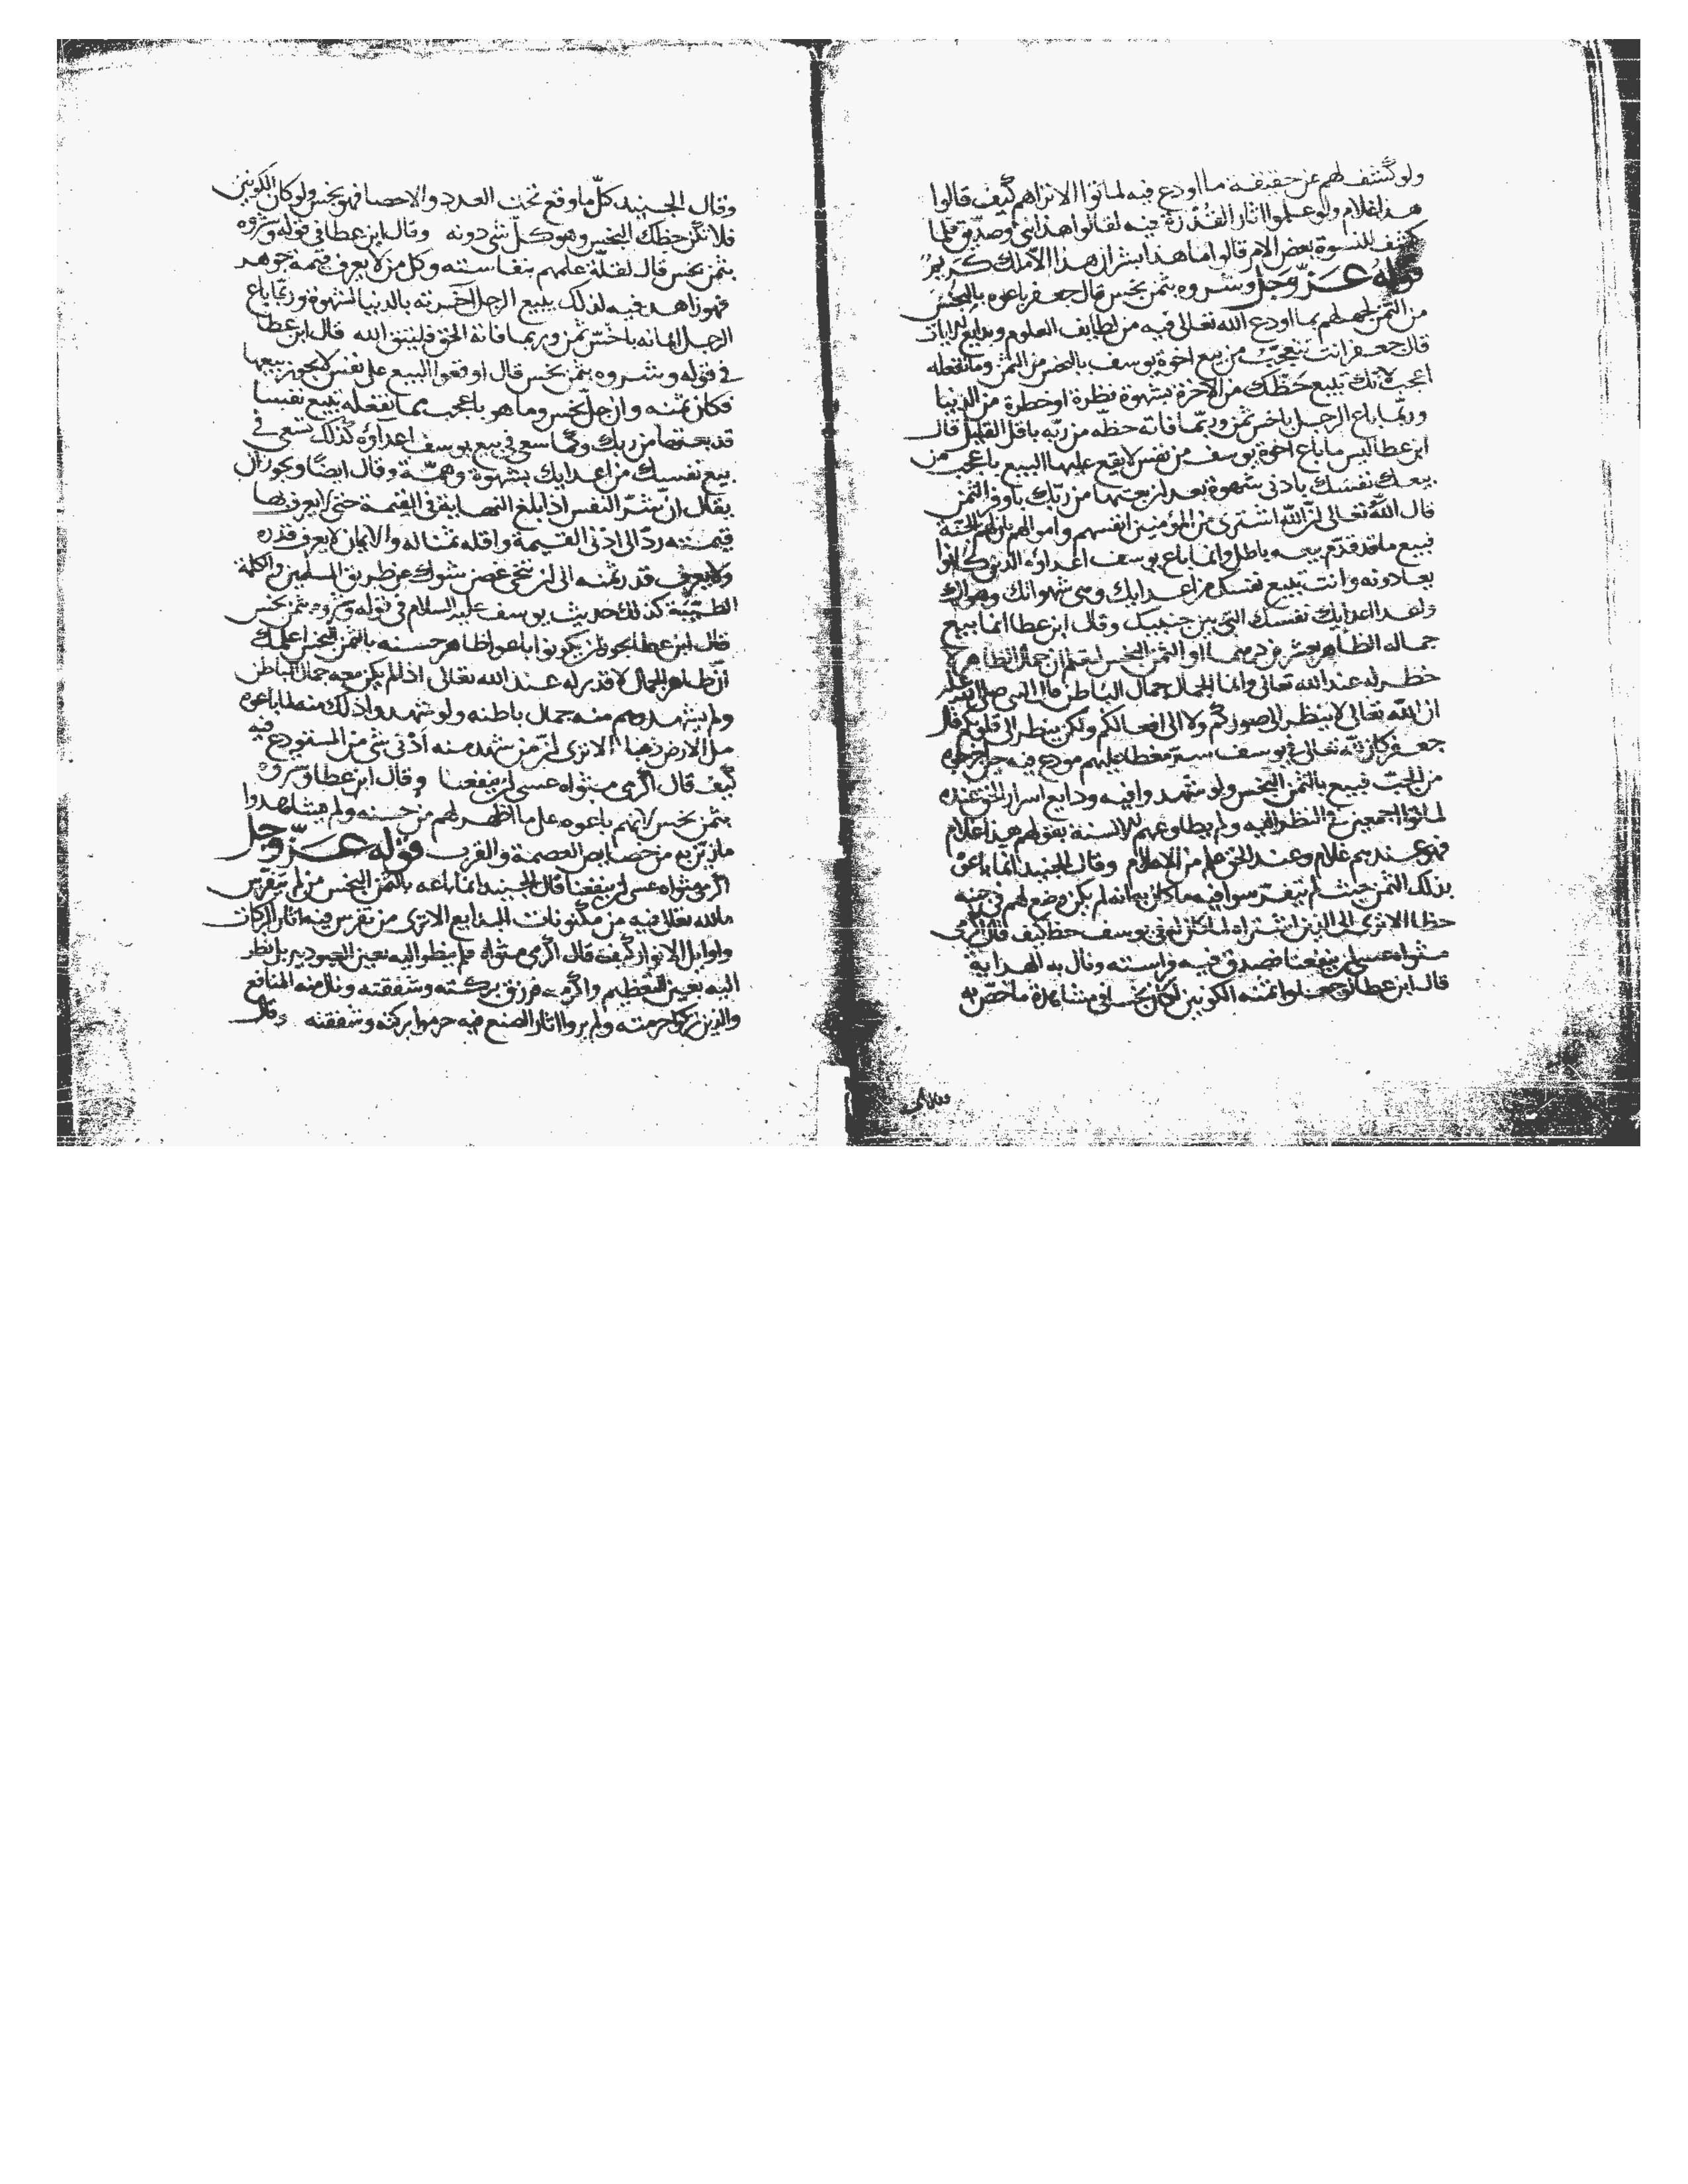 ولو كشف لهم عن حقيقة ما اودع فيه لماتوا الا تراهم كيف قالوا
هذا غلام ولو علموا اثار القدرة فيه لقالوا هذا نبي وصديق فلما
كشف للنسوة بعض الامر قالوا ما هذا بشرا ان هذا الا ملك كريم
قوله عز وجل وشروه بثمن بخس قال جعفر باعوه بالبخس
من الثمن لجهلهم بما اودع الله تعالى فيه من لطايف العلوم وبدايع الايات
قال جعفر انت تتعجب من بيع اخوة يوسف بالبخس من الثمن وما تفعله
اعجب لانك تبيع حظك من الاخرة بشهوة نظرة او خطرة من الدنيا
وربما باع الرجل باخس ثمن وربما فاته حظه من ربه باقل القليل قال
ابن عطا ليس ما باع اخوة يوسف من نفس لا يقع عليها البيع باعجب من
بيعك نفسك بادنى شهوة بعد ان بعتها من ربك باوفر الثمن
قال الله تعالى ان الله اشترى من المؤمنين انفسهم واموالهم بان لهم الجنة
فبيع ما قد قدم بيعه باطل وانما باع يوسف اعداؤه الذين كانوا
يعادونه وانت تبيع نفسك من اعدايك وهي شهواتك وهواك
واعدا اعدايك نفسك التي بين جنبيك وقال ابن عطا انما بيع
جماله الظاهر بعشرين درهما او الثمن البخس ليعلم ان جمال الظاهر لا
خطر له عند الله تعالى وانما الجمال جمال الباطن قال النبي صلى الله عليه
ان الله تعالى لا ينظر الى صوركم ولا الى افعالكم ولكن ينظر الى قلوبكم قال
جعفر كان لله تعالى في يوسف سر مغطا عليهم مودع فيه حين اخرجوه
من الجب فبيع بالثمن البخس ولو شهدوا فيه ودايع اسرار الحق عنده
لماتوا اجمعين في النظر اليه ولم يطاوعهم الالسنة بقولهم هذا غلام
فهو عندهم غلام وعند الحق علم من الاعلام وقال الجنيد انما باعوه
بذلك الثمن حيث لم يتفرسوا فيه ما كان به لانه لم يكن وضع لهم في جنبه
حظا الا ترى الى الذين اشتراه لما كان له في يوسف حظ كيف قال اكرمي
مثواه عسى ان ينفعنا فصدق فيه فراسته ونال به الهداية
قال ابن عطا لو جعلوا ثمنه الكونين لكان بخسا في مشاهدة ما خص به
وقال الجنيد
وقال الجنيد كل ما وقع تحت العدد والاحصا فهو بخس ولو كان الكونين
فلا تكن حظك البخس وهو كل شي دونه وقال ابن عطا في قوله وشروه
بثمن بخس قال لقلة علمهم بنفاسته وكل من لا يعرف قيمة جوهر
فهو زاهد فيه لذلك يبيع الرجل اخرته بالدنيا لشهوة وربما باع
الرجل ايمانه باخس ثمن وربما فاته الحق فليتق الله قال ابن عطا
في قوله وشروه بثمن بخس قال اوقعوا البيع على نفس لا يجوز بيعها
فكان ثمنه وان جل بخس وما هو باعجب مما تفعله تبيع نفسا
قد بعتها من ربك وكما سعى في بيع يوسف اعداؤه كذلك تسعى في
بيع نفسك من اعدايك بشهوة وهمة وقال ايضا ويجوز ان
يقال ان شر النفس اذا بلغ النهاية في القيمة حتى لا يعرف لها
قيمته رد الى ادنى القيمة واقله مثاله والايمان لا يعرف قدره
ولا يعرف قدر ثمنه الى ان تنحى غصن شوك عن طريق المسلمين والكلمة
الطيبة كذلك حديث يوسف عليه السلام في قوله وشروه بثمن بخس
قال ابن عطا يجوز ان يكونوا باعوا ظاهر حسنه بالثمن البخس اعلمك
ان ظاهر الجمال لا قدر له عند الله تعالى اذا لم يكن معه جمال الباطن
ولم يشهدوهم منه جمال باطنه ولو شهدوا ذلك منه لما باعوه
مل الارض ذهبا الا ترى ان من شهد منه ادنى شي من المستودع فيه
كيف قال اكرمي مثواه عسى ان ينفعنا وقال ابن عطا وشروه
بثمن بخس لانهم باعوه على ما اظهر لهم من حسنه ولم يشاهدوا
ما زين به من خصايص العصمة والقرب قوله عز وجل
اكرمي مثواه عسى ان ينفعنا قال الجنيد انما باعه بالثمن البخس من لم يتفرس
ما لله تعالى فيه من مكنونات البدايع الا ترى من تفرس فيه اثار البركات
واوايل الانوار كيف قال اكرمي مثواه فلم ينظر اليه بعين العبودية بل نظر
اليه بعين التعظيم واكرمه فرزق بركته وشفقته ونال منه المنافع
والذين تركوا حرمته ولم يروا اثار الصنع فيه حرموا بركته وشفقته وقال